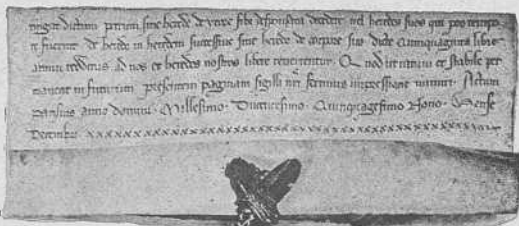 dictum petrum sine herede de uxore sibi desponsata decedere vel heredes suos qui pro tempo
re fuerint de herede in heredem successive sine herede de corpore suo dicte Quinquaginta libre
annui redditus ad nos et heredes nostros libere revertentur. Quod ut ratum et stabile per
maneat in futurum presentem paginam sigilli nri fecimus impressione muniri. Actum
Parisius anno domini. Millesimo. Ducentesimo. Quinquagesimo Nono. Mense
Decembri.